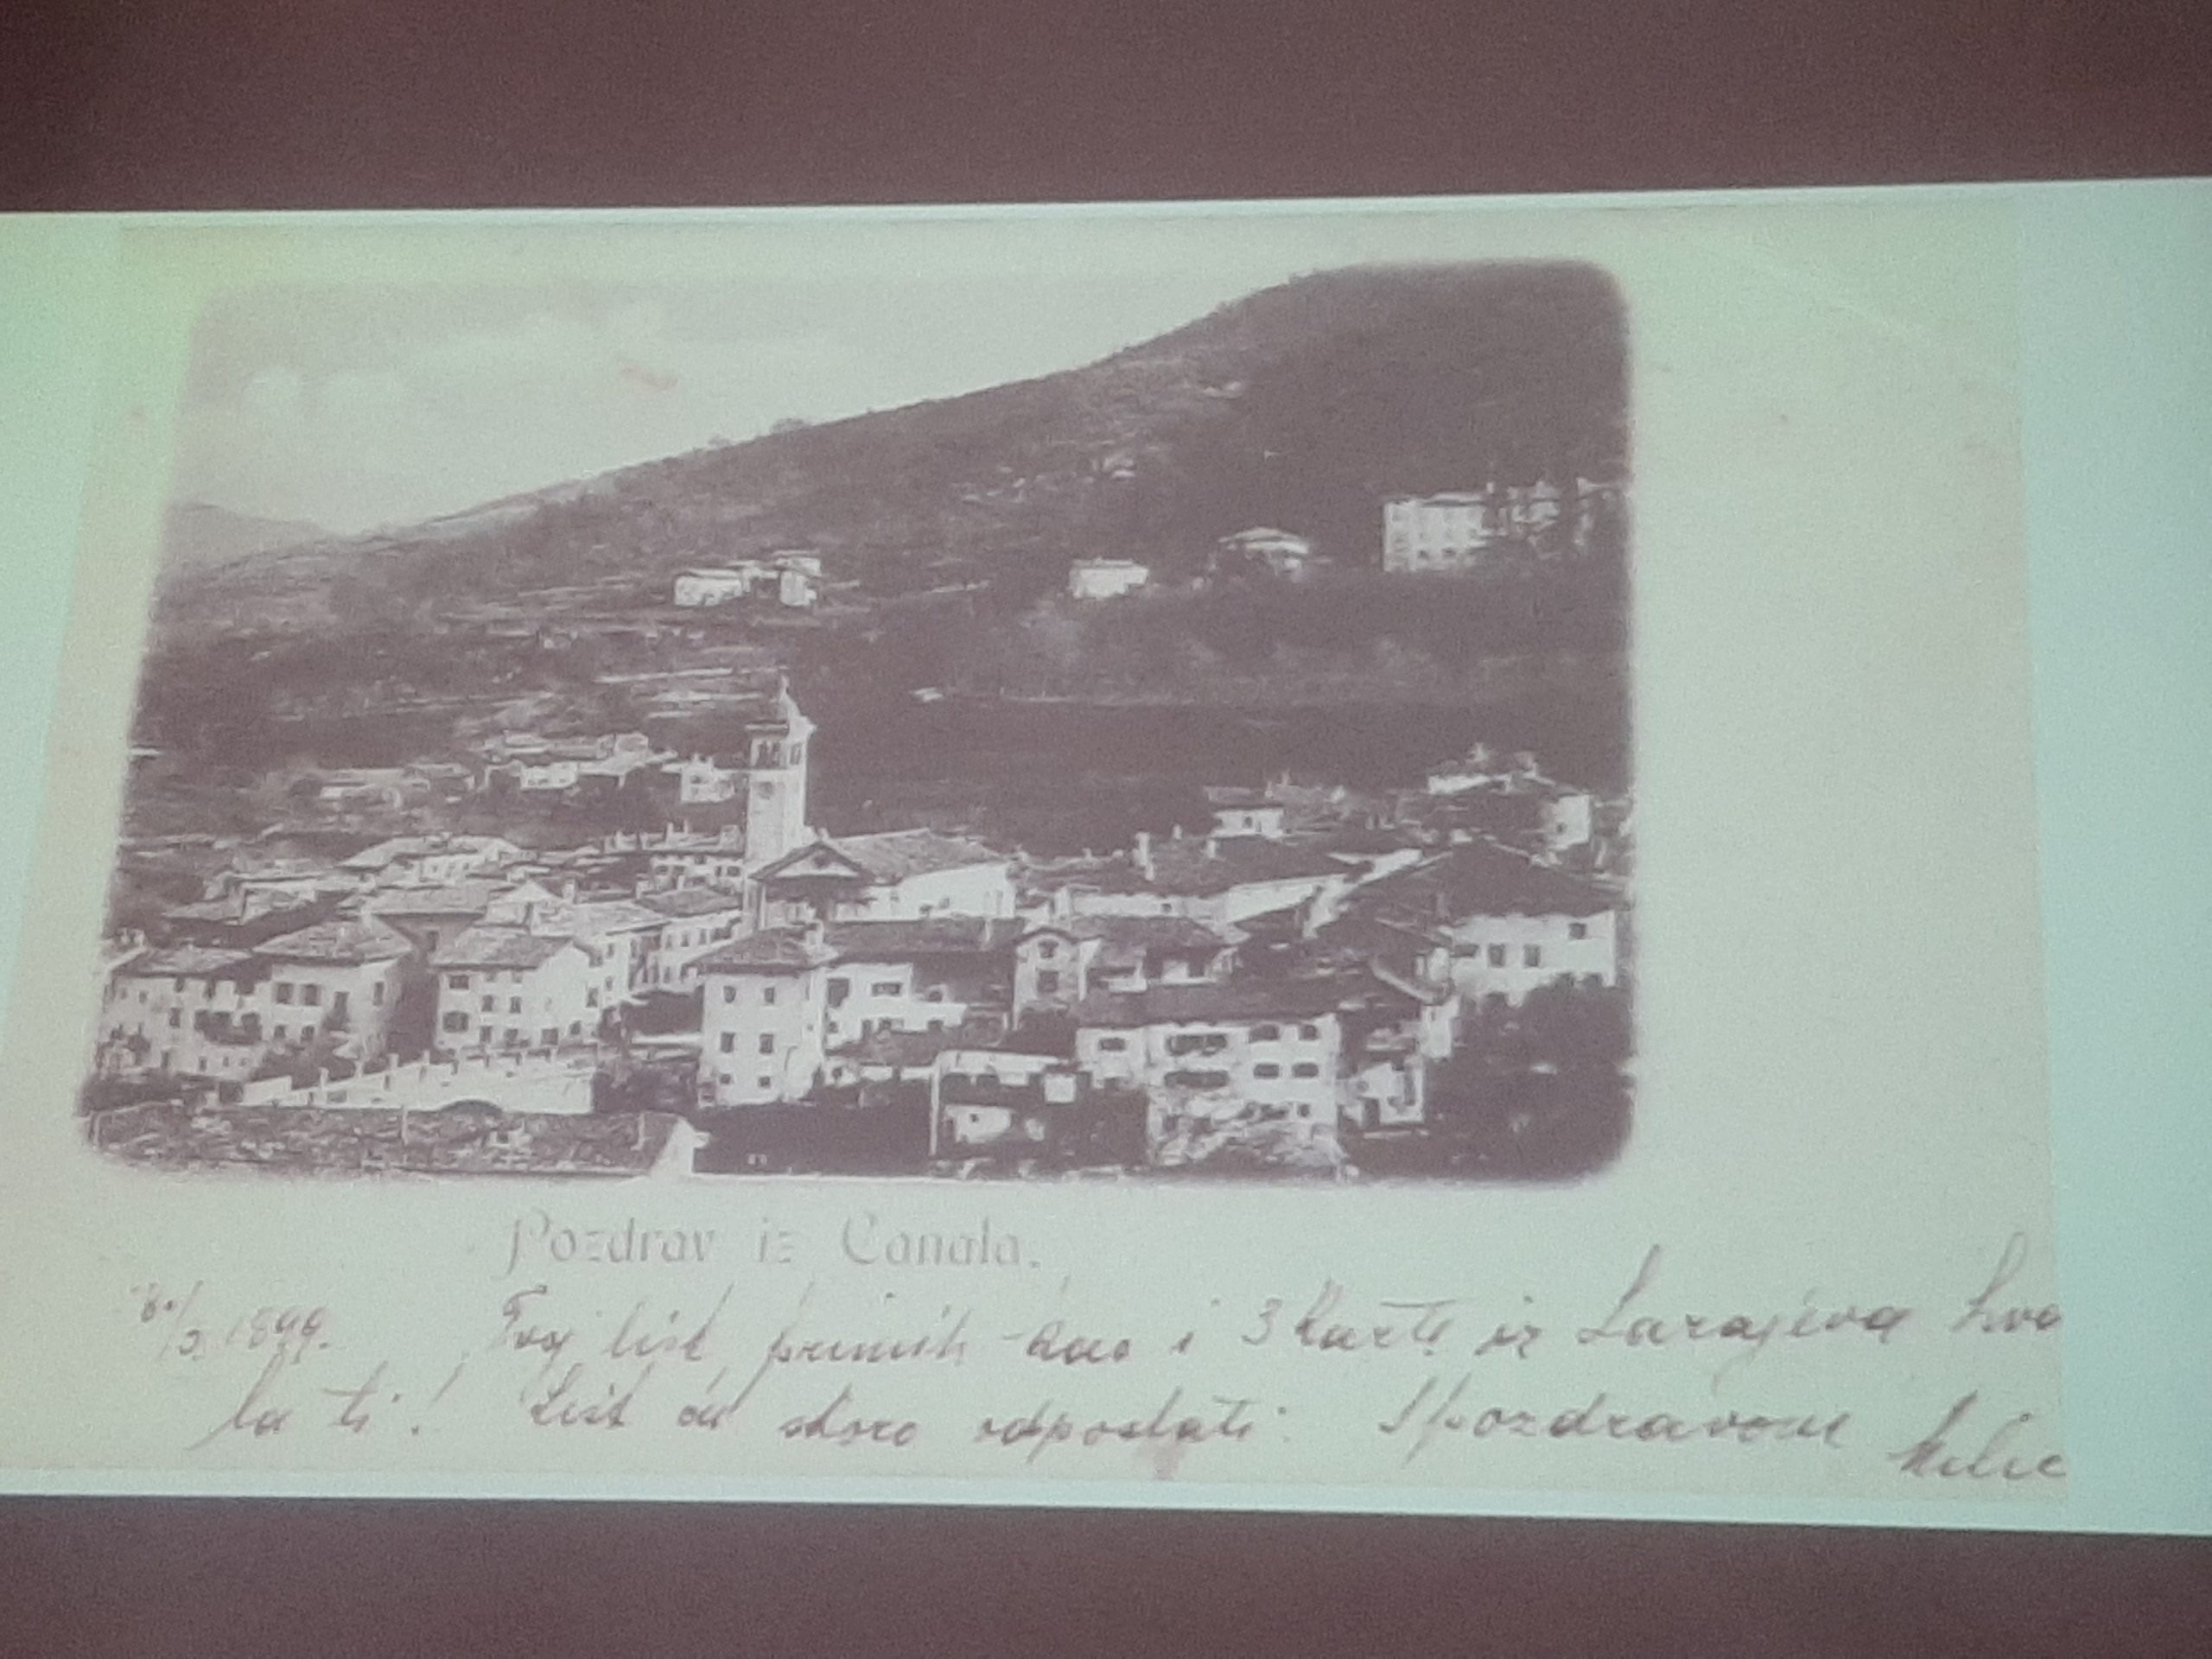 Pozdrav iz Canala.
1899. Tvoj list primih kao i 3 karte iz Sarajeva hva
la ti! List ću skoro odposlati. S pozdravom